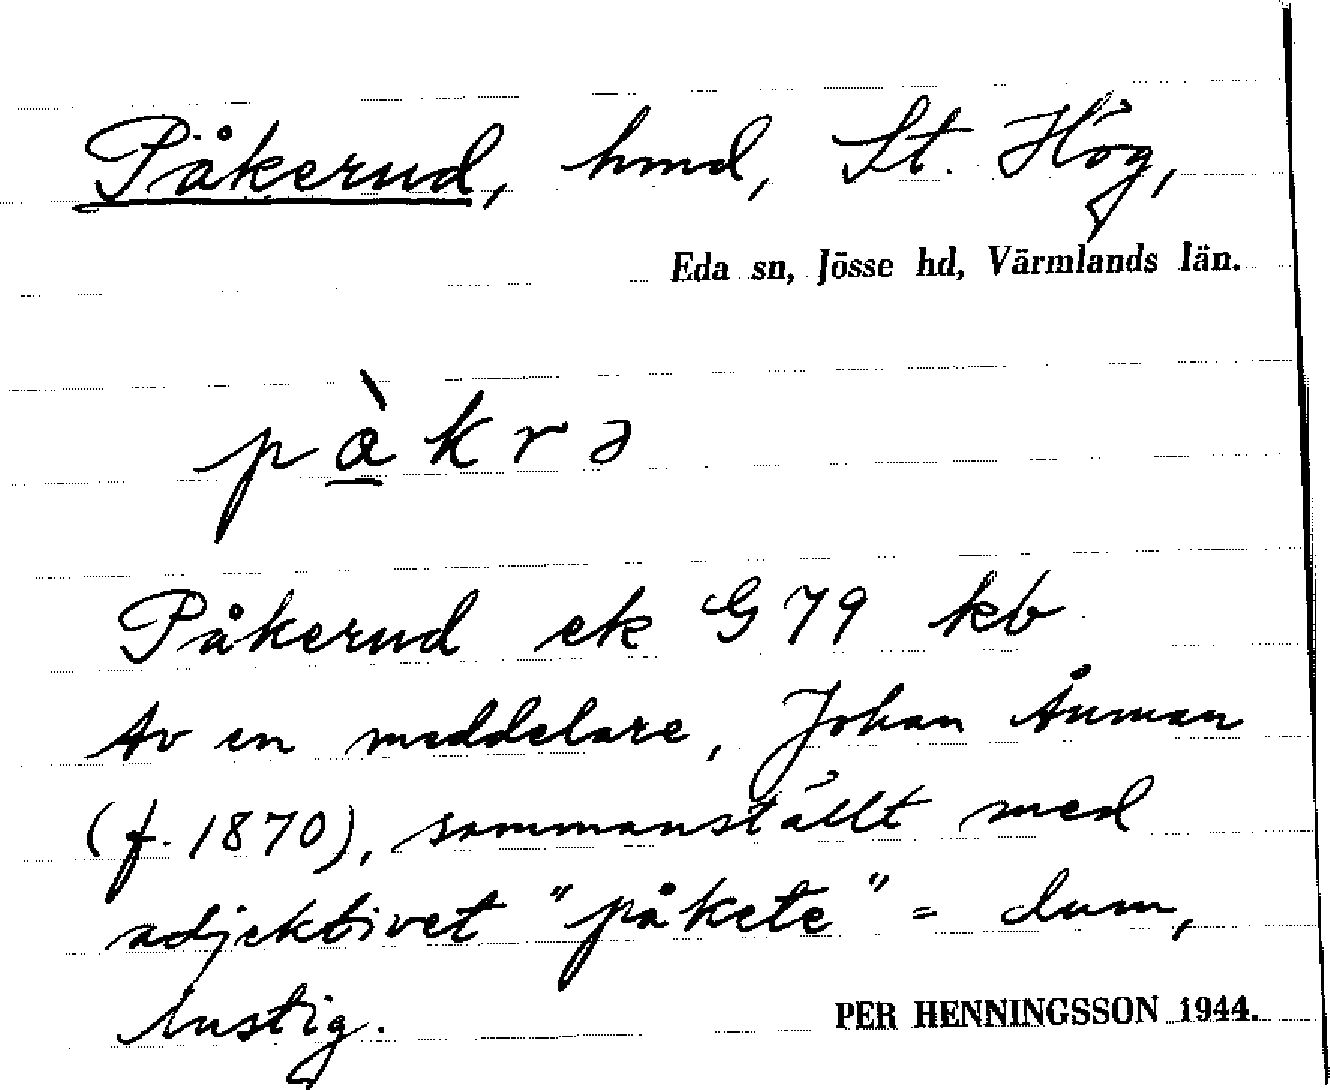 Påkerud, hmd, St. Hög,
Eda sn, Jösse hd, Värmlands län.
pàkrə
Påkerud ek G79 kb
Av en meddelare, Johan Åmman
(f. 1870), sammanställt med
adjektivet "påkete" = dum,
lustig.
PER HENNINGSSON 1944.